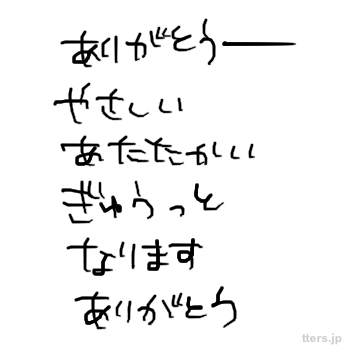 ありがとうー
やさしい
あたたかいい
ぎゅうっと
なります
ありがとう
tters.jp